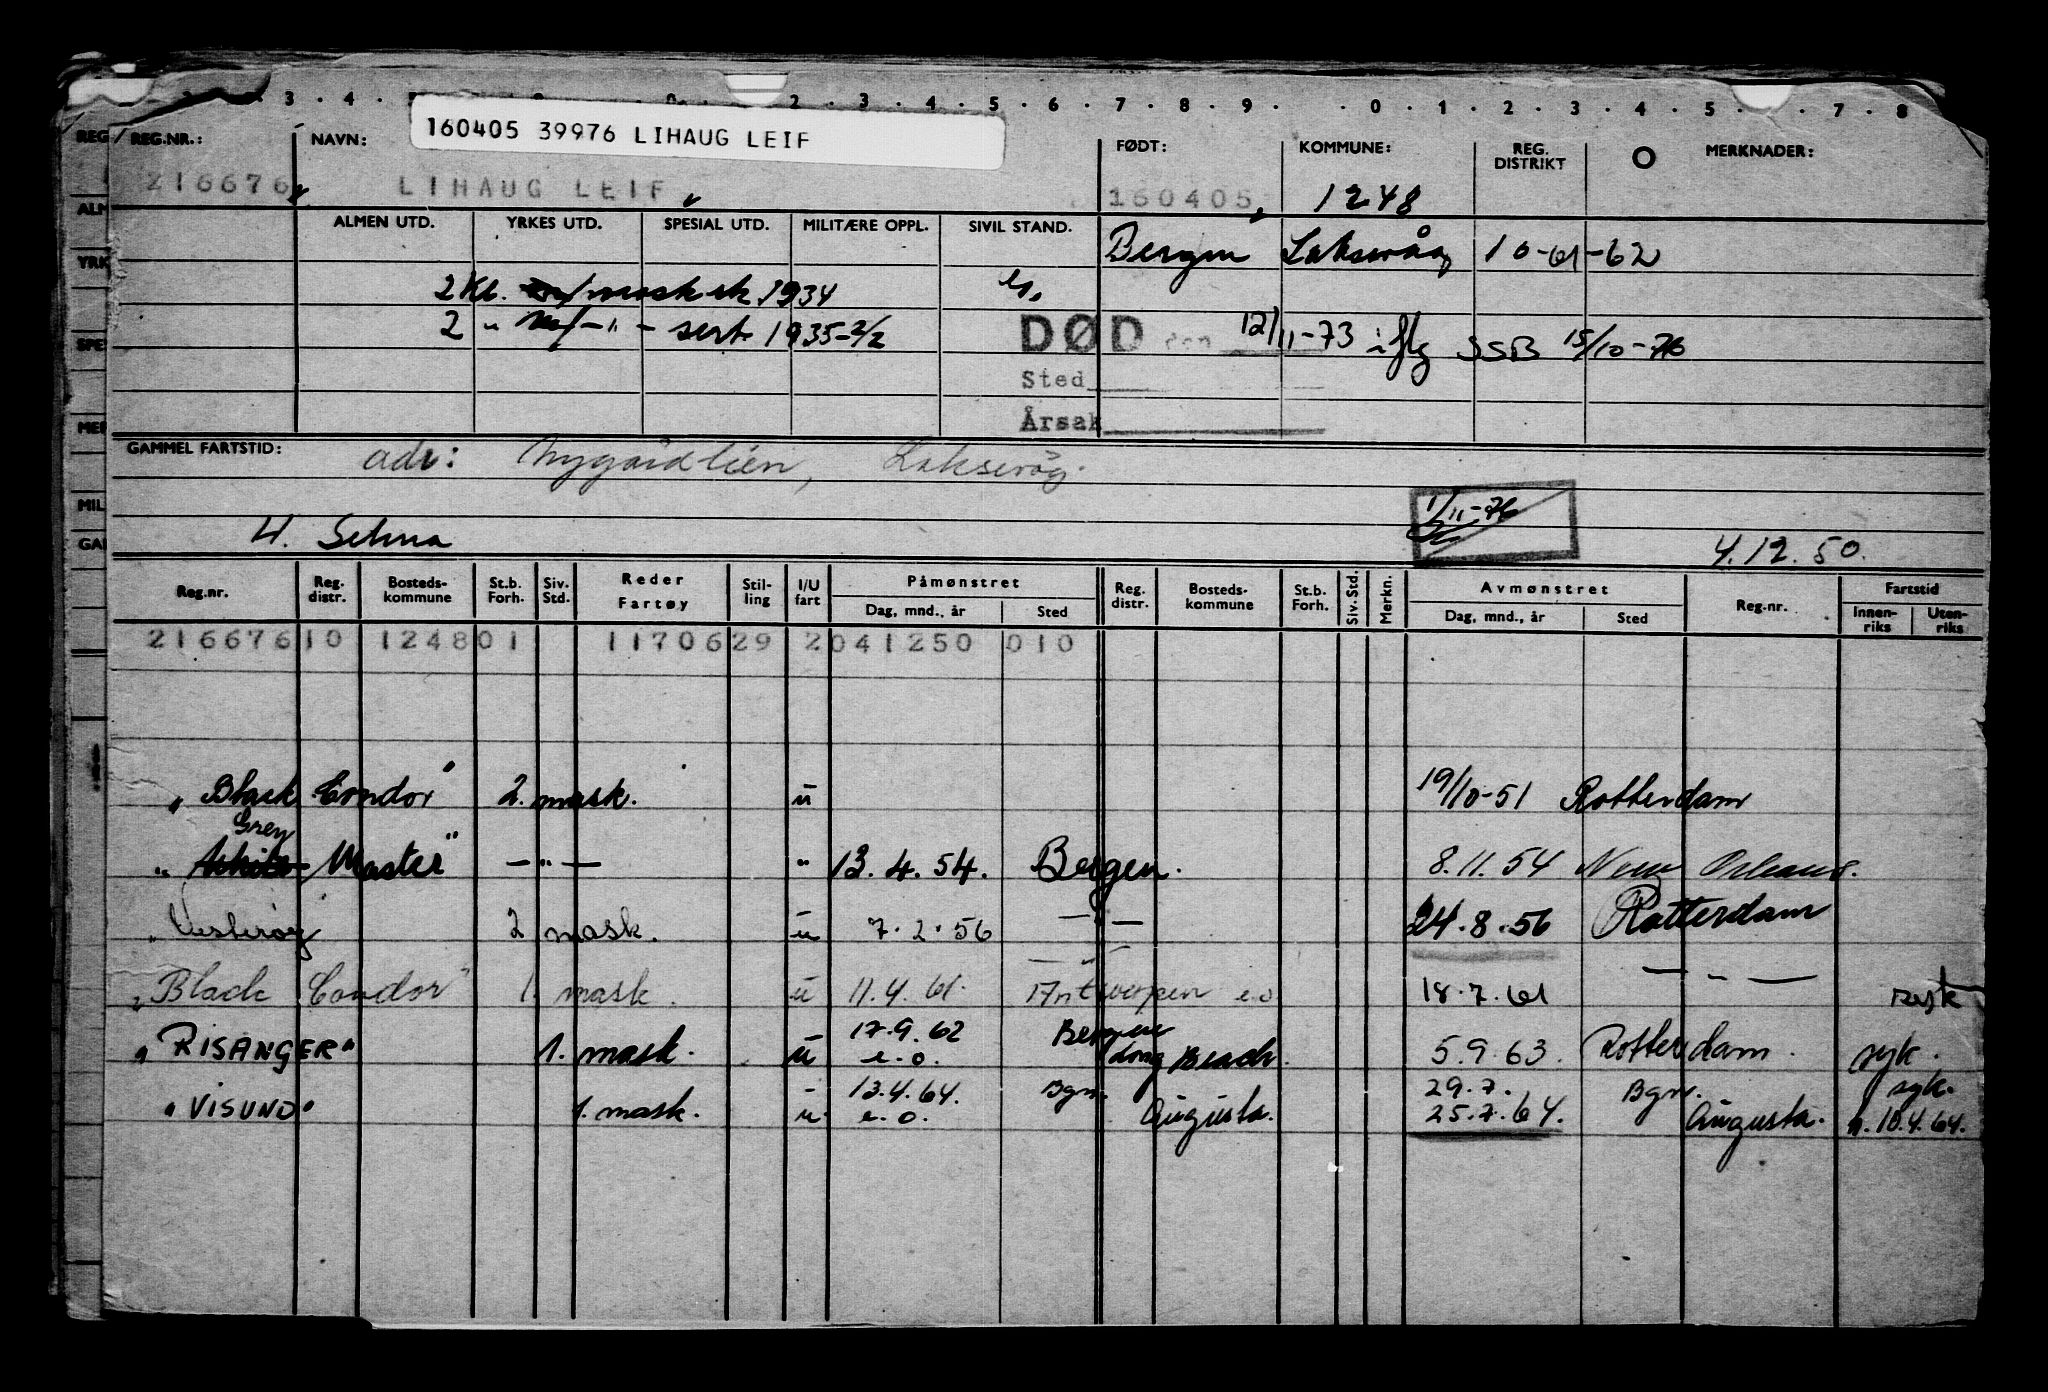 3 . 4 . 2 . 3 . 4 . 5 . 6 . 7 . 8 . 9 . 0 . 1 . 2 . 3 . 4 . 5 . 7 . 8
160405 39976 LIHAUG LEIF
REG REG.NR.: NAVN: FØDT: KOMMUNE: REG. DISTRIKT O MERKNADER:
216676 LIHAUG LEIF 160405 1248
ALM ALMEN UTD. YRKES UTD. SPESIAL UTD. MILITÆRE OPPL. SIVIL STAND.
YRK Bergen Laksevåg 10-61-62
2 Kl. mask sk 1934
2 " - " - sert. 1935-2/2
SPE DØD den 12/11-73 iflg SSB 15/10-76
Sted
MER Årsak
GAMMEL FARTSTID: adr: Nygårdlien, Laksevåg.
MIL 1/11-76
GAM H. Selma 4.12.50.
Reg.nr. Reg. distr. Bosteds-kommune St.b. Forh. Siv. Std. Reder Fartøy Stil-ling I/U fart Påmønstret Dag, mnd., år Sted Reg. distr. Bosteds-kommune St.b. Forh. Siv. Std. Merkn. Avmønstret Dag, mnd., år Sted Reg.nr. Fartstid Innen-riks Uten-riks
216676 10 1248 01 1170629 2 041250 010
"Black Condor" 2. mask. u 19/10-51 Rotterdam
Grey
"White Master" - " - " 13.4.54. Bergen. 8.11.54 New Orleans.
"Vesterøy 2 mask. u 7.2.56 - " - 24.8.56 Rotterdam
"Black Condor" 1. mask. u 11.4.61. Antwerpen e.o 18.7.61 - " -
"RISANGER" 1. mask. u 17.9.62 Bergen
e.o. Long Beach. 5.9.63. Rotterdam. syk.
"VISUND" 1. mask. u 13.4.64. Bgn. 29.7. Bgn. syk.
e.o. Augusta. 25.7.64. Augusta. n. 10.4.64.